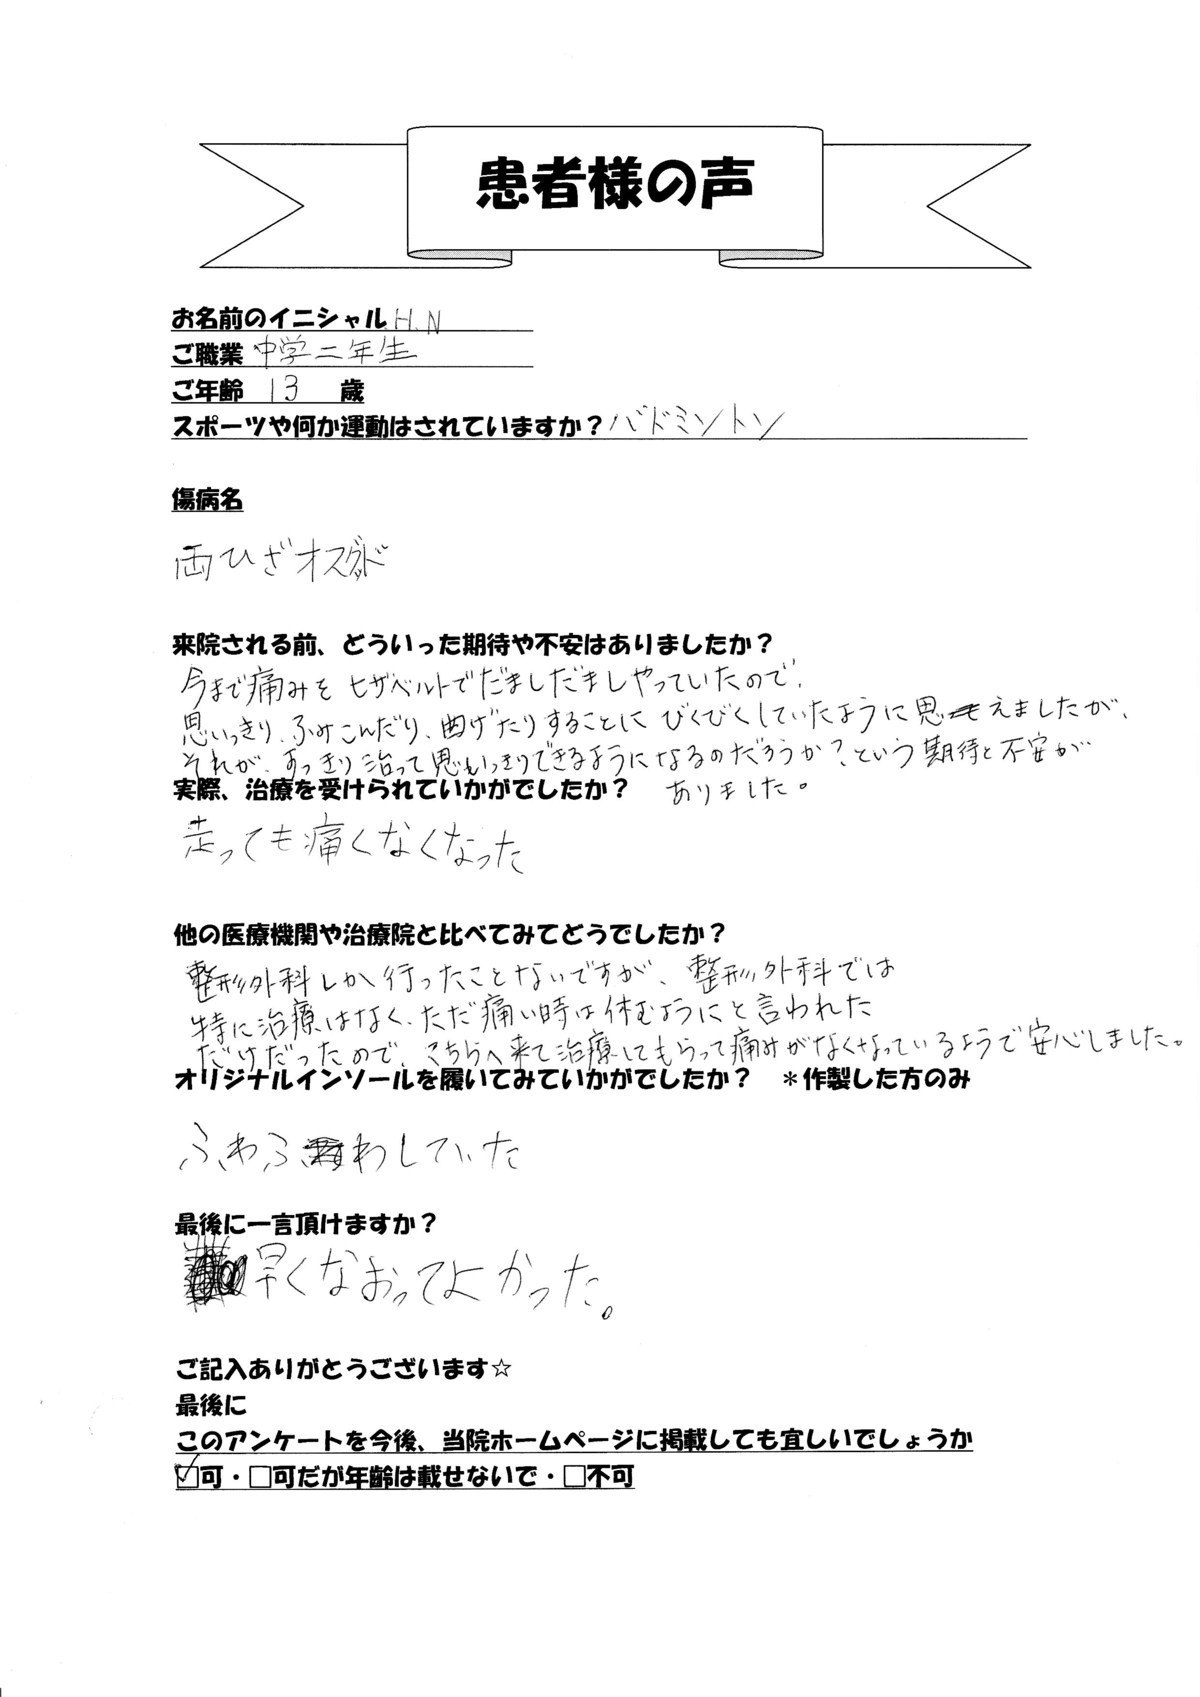 患者様の声
お名前のイニシャル H.N
ご職業 中学二年生
ご年齢 13 歳
スポーツや何か運動はされていますか？バドミントン
傷病名
両ひざオスグッド
来院される前、どういった期待や不安はありましたか？
今まで痛みを ヒザベルトでだましだましやっていたので、
思いっきり、ふみこんだり、曲げたりすることに びくびくしていたように思えましたが、
それが、すっきり治って思いっきりできるようになるのだろうか？という期待と不安が
ありました。
実際、治療を受けられていかがでしたか？
走っても痛くなくなった
他の医療機関や治療院と比べてみてどうでしたか？
整形外科しか行ったことないですが、整形外科では
特に治療はなく、ただ痛い時は休むようにと言われた
だけだったので、こちらへ来て治療してもらって痛みがなくなっているようで安心しました。
オリジナルインソールを履いてみていかがでしたか？　＊作製した方のみ
ふわふわしていた
最後に一言頂けますか？
早くなおってよかった。
ご記入ありがとうございます☆
最後に
このアンケートを今後、当院ホームページに掲載しても宜しいでしょうか
☑可・□可だが年齢は載せないで・□不可